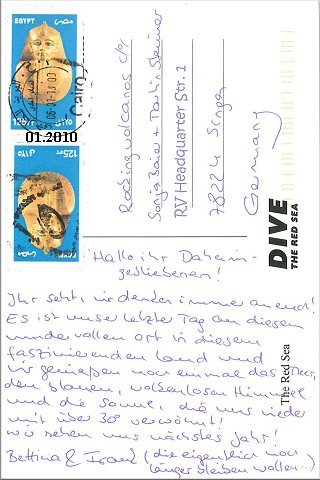 EGYPT
125PT
Cairo
01.2010
125PT
Rocking volcanos c/o
Sonja Baier + Martin Skinner
RV Headquarter Str. 1
78224 Singen
Germany
DIVE
THE RED SEA
The Red Sea
Hallo ihr Daheim-
gebliebenen!
Ihr seht, wir denken immer an euch!
Es ist unser letzter Tag an diesem
wundervollen Ort in diesem
faszinierenden Land und
wir genießen noch einmal das Meer,
den blauen, wolkenlosen Himmel
und die Sonne, die uns wieder
mit über 30° verwöhnt!
Wir sehen uns nächstes Jahr!
Bettina & (die eigentlich noch
länger bleiben wollen...)